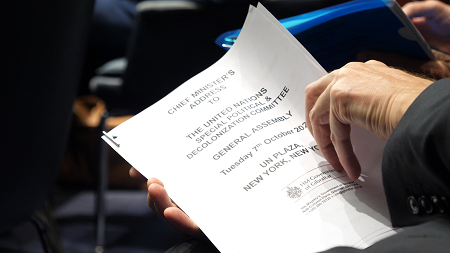 CHIEF MINISTER'S
ADDRESS
TO
THE UNITED NATIONS
SPECIAL POLITICAL &
DECOLONIZATION COMMITTEE
GENERAL ASSEMBLY
Tuesday 7th October
UN PLAZA,
NEW YORK, NEW
HM Government
of Gibraltar